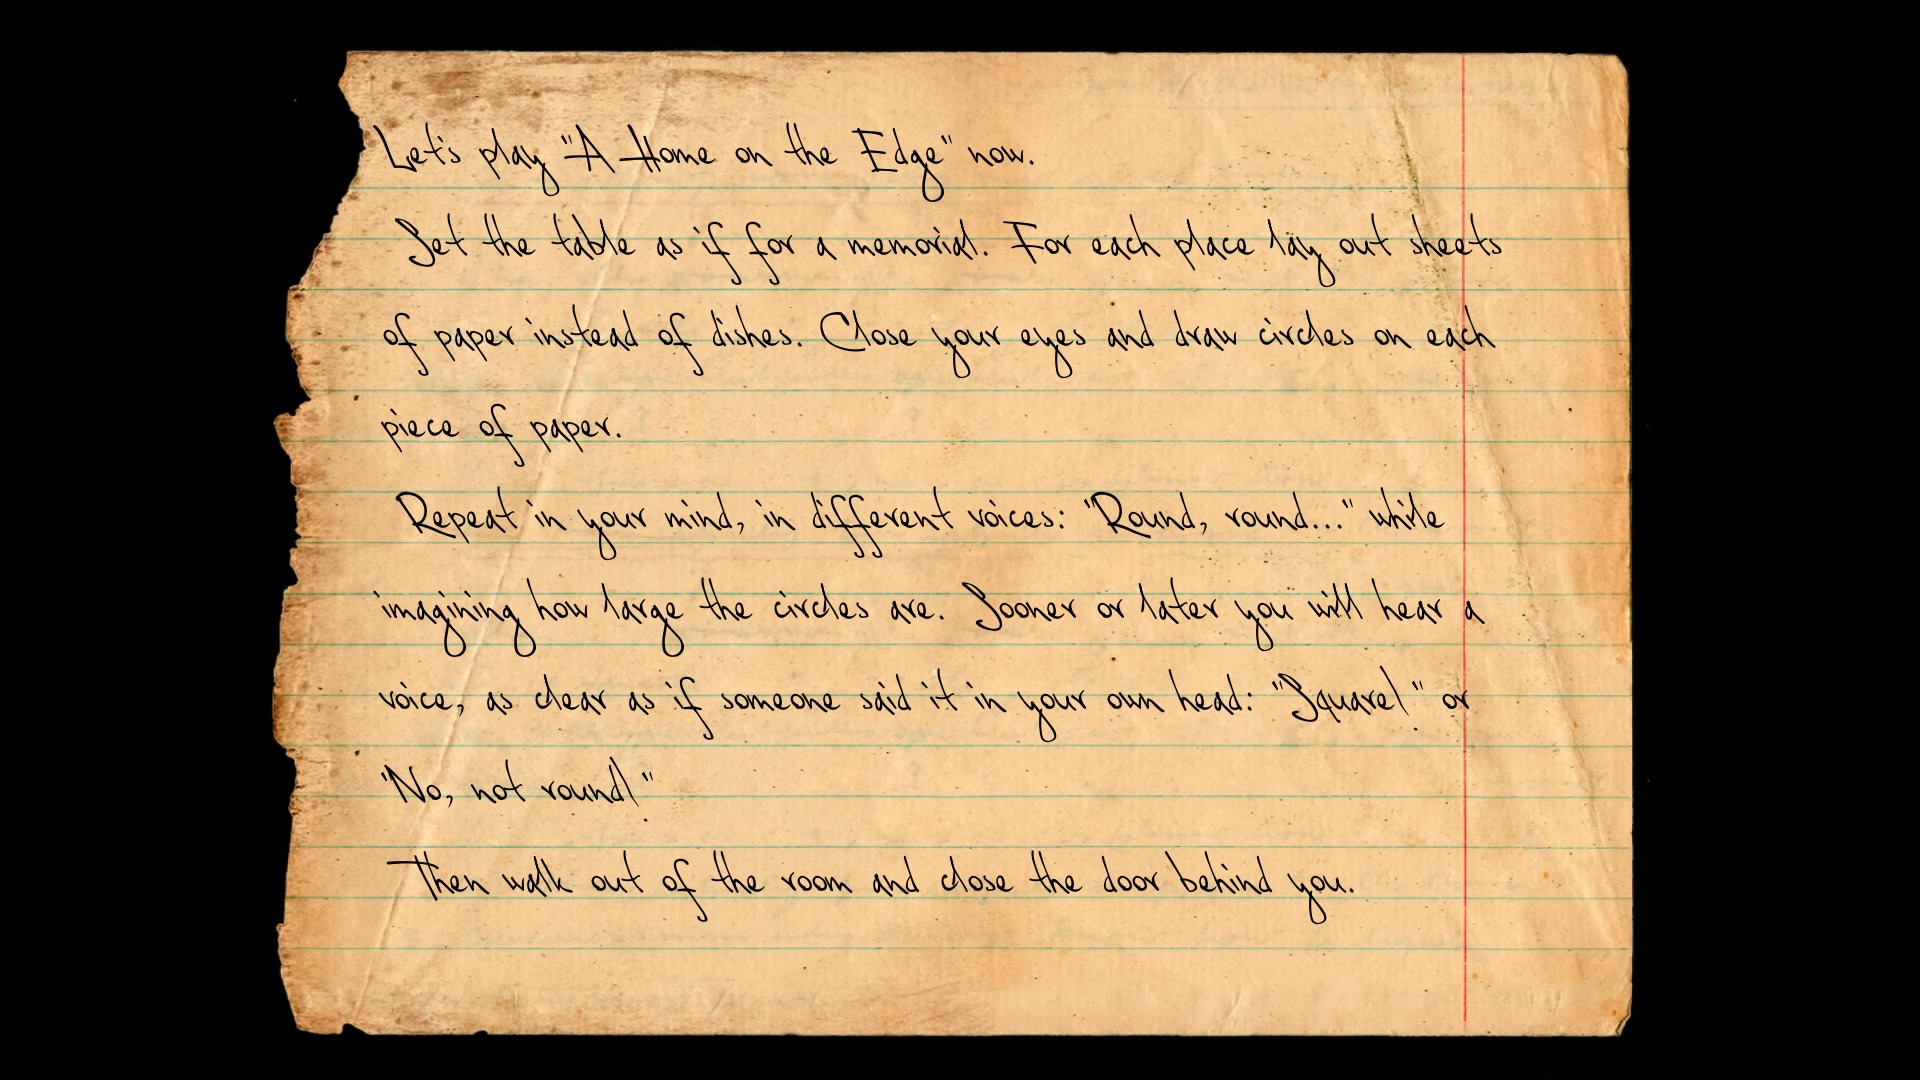 Let's play "A Home on the Edge" now.
Set the table as if for a memorial. For each place lay out sheets
of paper instead of dishes. Close your eyes and draw circles on each
piece of paper.
Repeat in your mind, in different voices: "Round, round..." while
imagining how large the circles are. Sooner or later you will hear a
voice, as clear as if someone said it in your own head: "Square!" or
"No, not round!"
Then walk out of the room and close the door behind you.